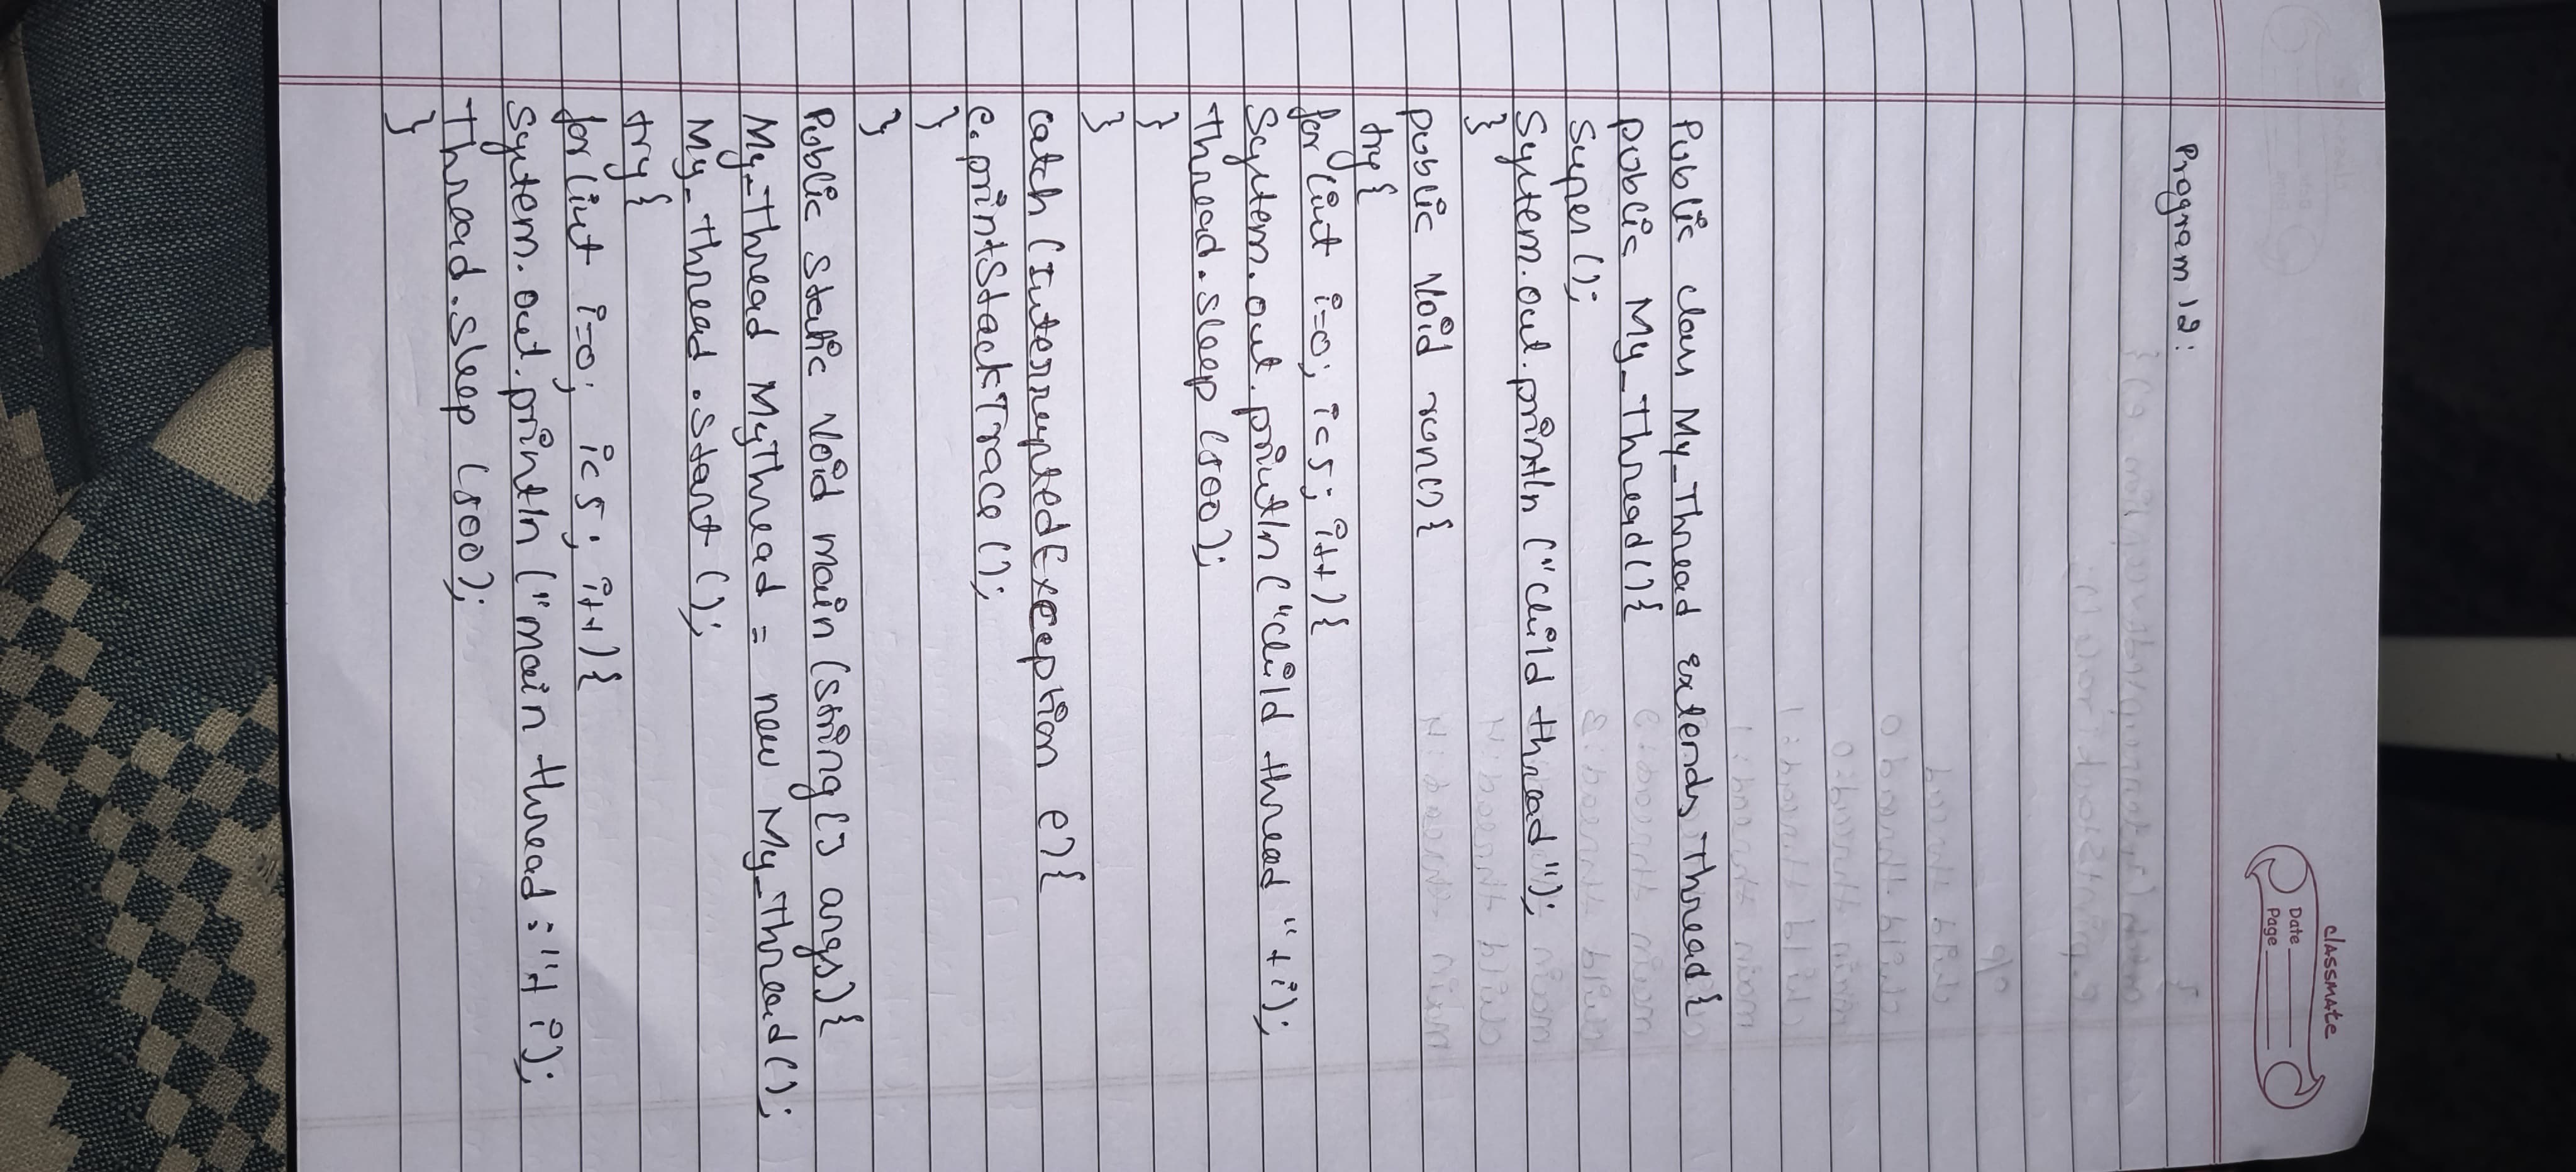 classmate
Date
Page
Program 12:
Public class My_Thread extends Thread{
public My_Thread(){
Super();
System.out.println ("child thread");
}
public void run(){
try{
for (int i=0; i<5; i++){
System.out.println("child thread "+i);
Thread.sleep (500);
}
}
catch (InterruptedException e){
e.printStackTrace ();
}
}
Public static void main (string[] args){
My_Thread MyThread = new My_Thread();
My_Thread.start ();
try{
for (int i=0; i<5; i++){
System.out.println ("main thread:"+ i);
Thread.sleep (500);
}